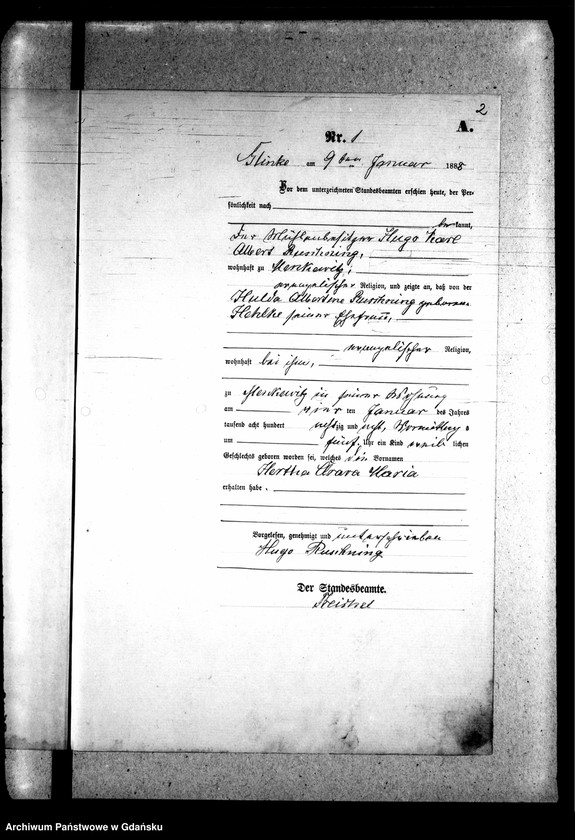 2
A.
Nr. 1
Glinke am 9ten Januar 1888
Vor dem unterzeichneten Standesbeamten erschien heute, der Per-
sönlichkeit nach
bekannt,
der Mühlenbesitzer Hugo Karl
Albert Ruschning,
wohnhaft zu
evangelischer Religion, und zeigte an, daß von der
Hulda Albertine Ruschning geborene
seiner Ehefrau,
evangelischer Religion,
wohnhaft bei ihm,
zu in seiner Wohnung
am vier ten Januar des Jahres
tausend acht hundert achtzig und acht, Vormittags
um fünf Uhr ein Kind weib lichen
Geschlechts geboren worden sei, welches den Vornamen
Hertha Clara Maria
erhalten habe.
Vorgelesen, genehmigt und unterschrieben
Hugo Ruschning
Der Standesbeamte.
Archiwum Państwowe w Gdańsku